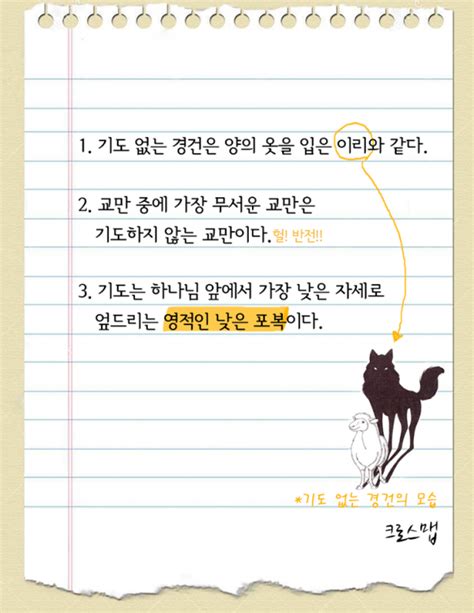 1. 기도 없는 경건은 양의 옷을 입은 이리와 같다.
2. 교만 중에 가장 무서운 교만은
기도하지 않는 교만이다.헐! 반전!!
3. 기도는 하나님 앞에서 가장 낮은 자세로
엎드리는 영적인 낮은 포복이다.
*기도 없는 경건의 모습
크로스맵